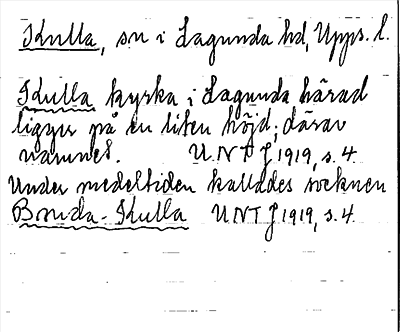 Kulla, sn i Lagunda hd, Upps. l.
Kulla kyrka i Lagunda härad
ligger på en liten höjd; därav
namnet. UNT J 1919, s. 4.
Under medeltiden kallades socknen
Bonda-Kulla UNT J 1919, s. 4.